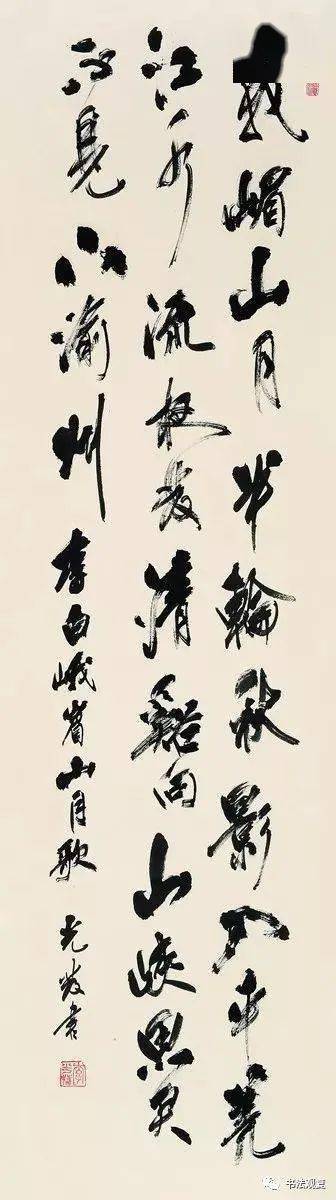 峩嵋山月半輪秋影入平羌
江水流夜發清谿向山峽思君
不見下渝州
李白峨眉山月歌
書
书法观